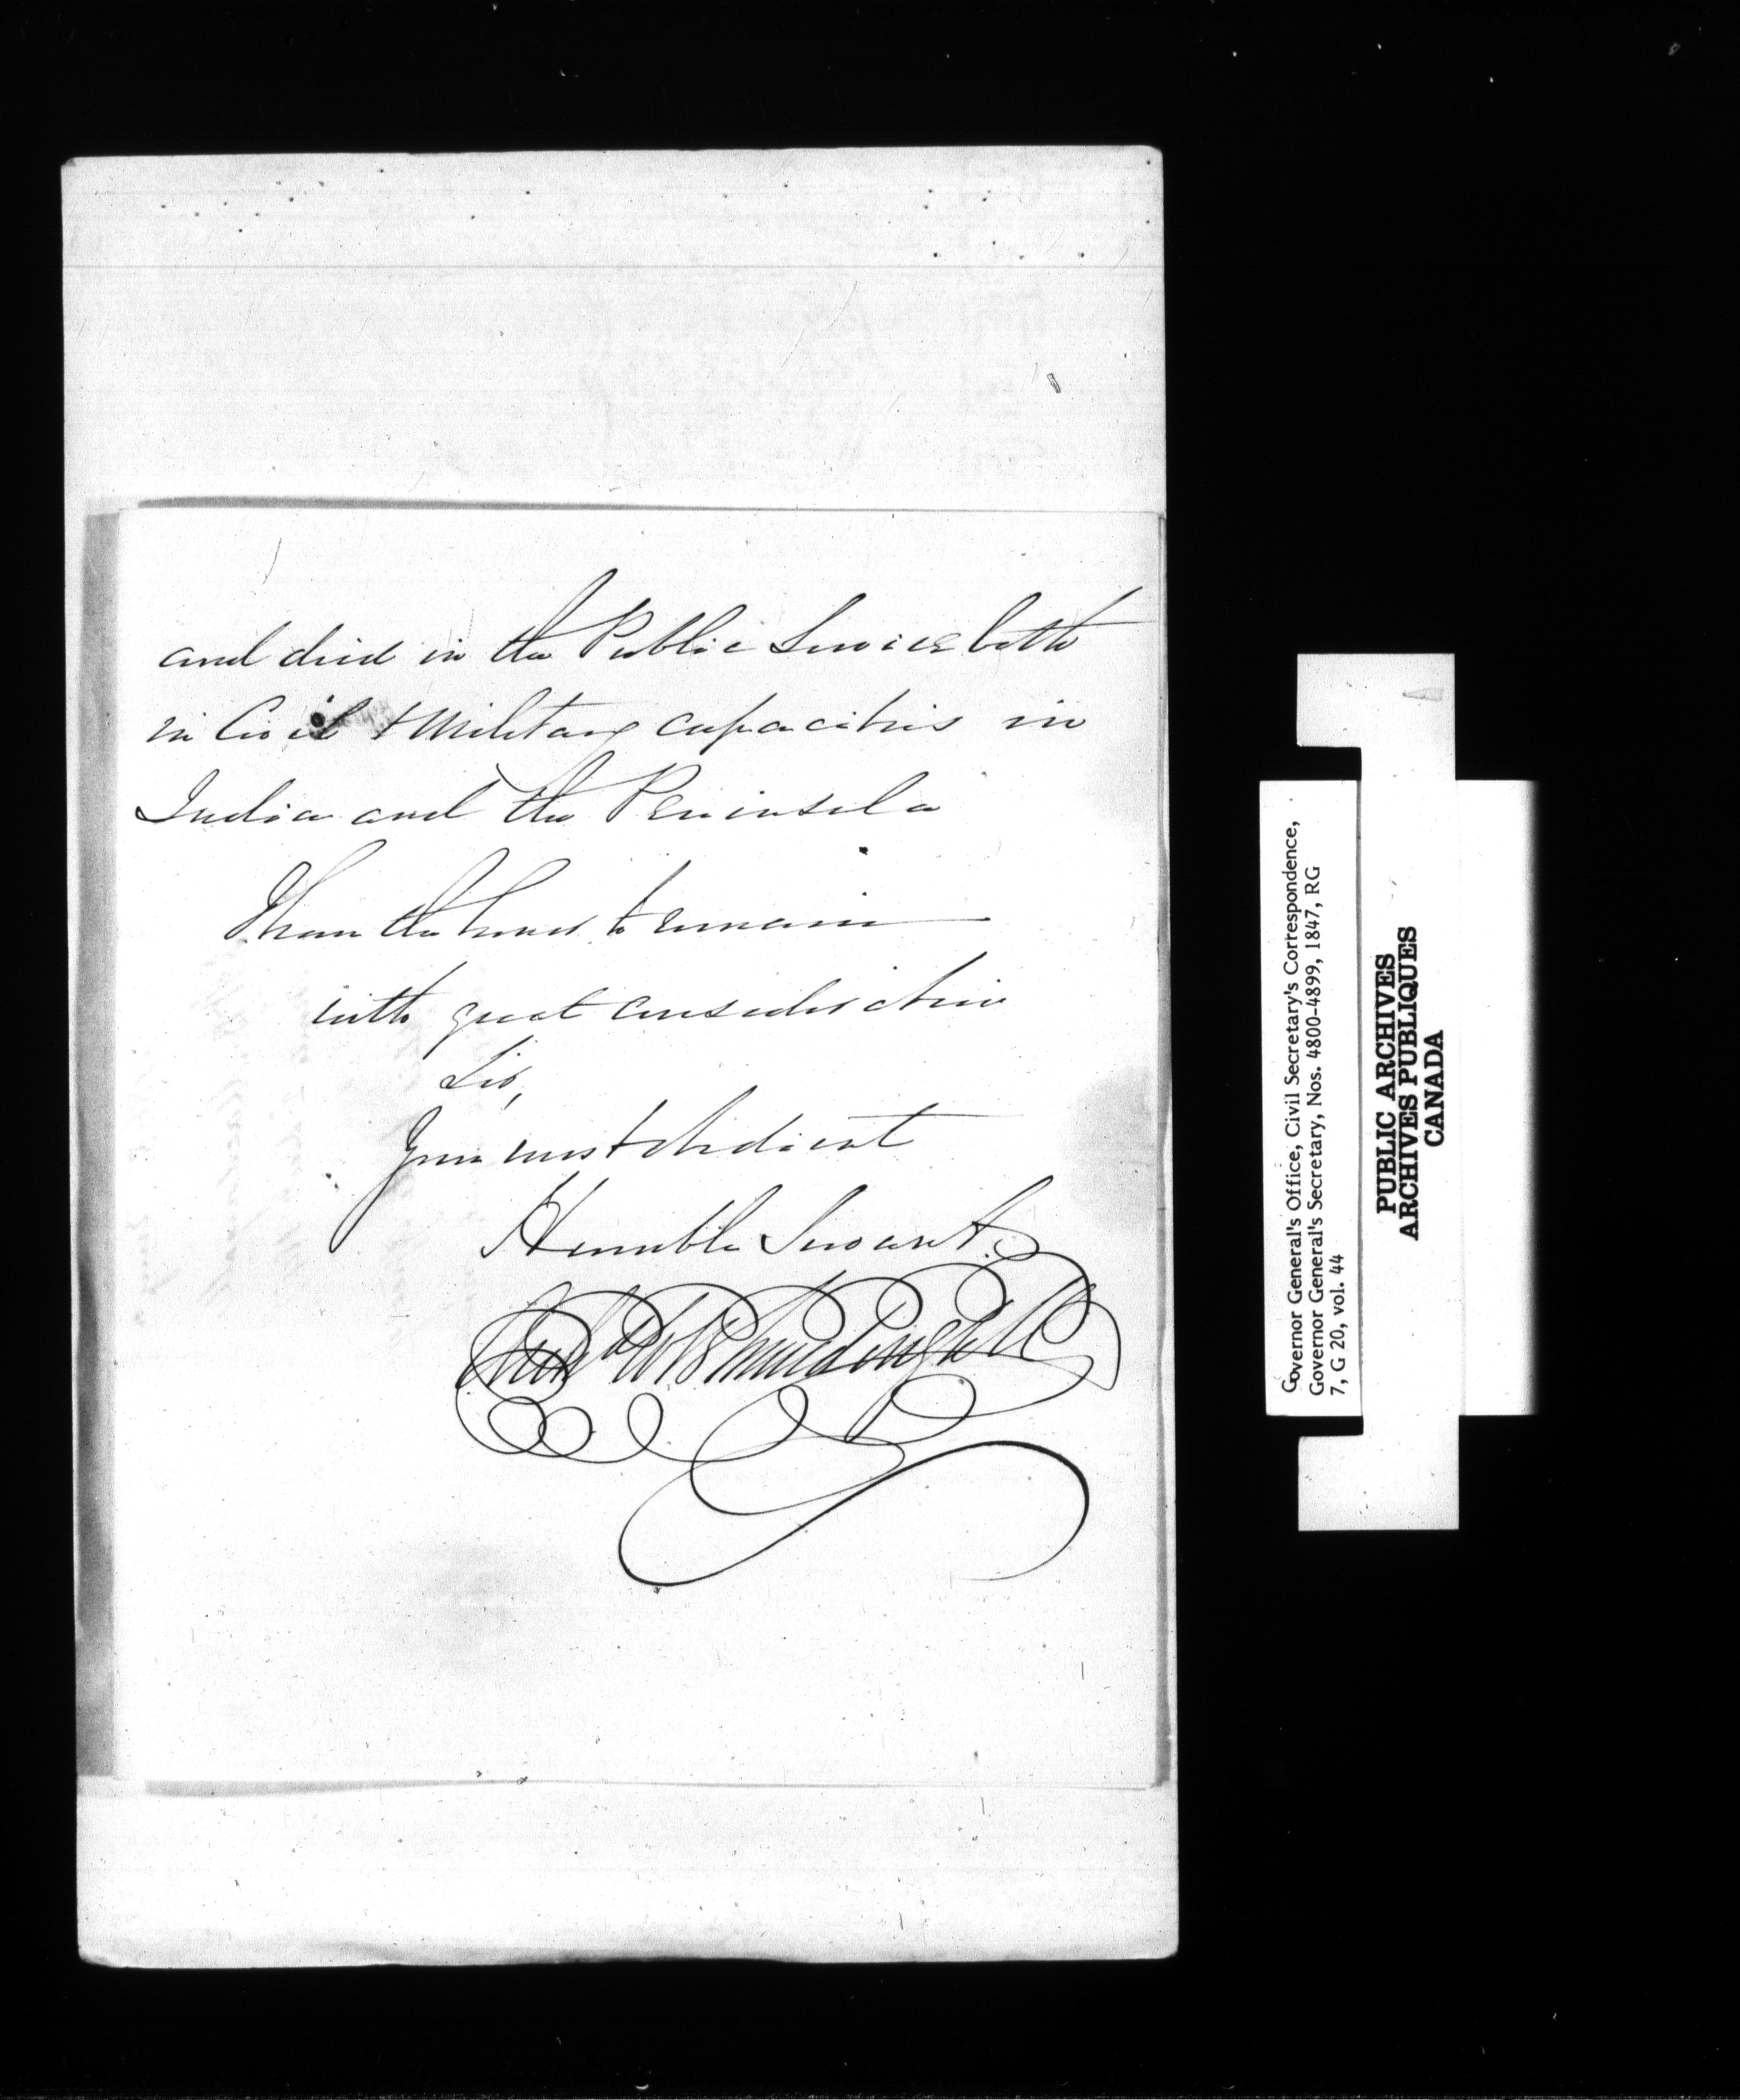 and died in the Public Service both
in Civil & Military capacities in
India and the Peninsula
I have the honor to remain
with great consideration
Sir,
Your most obedient
Humble Servant
Governor General's Office, Civil Secretary's Correspondence,
Governor General's Secretary, Nos. 4800-4899, 1847, RG
7, G 20, vol. 44
PUBLIC ARCHIVES
ARCHIVES PUBLIQUES
CANADA